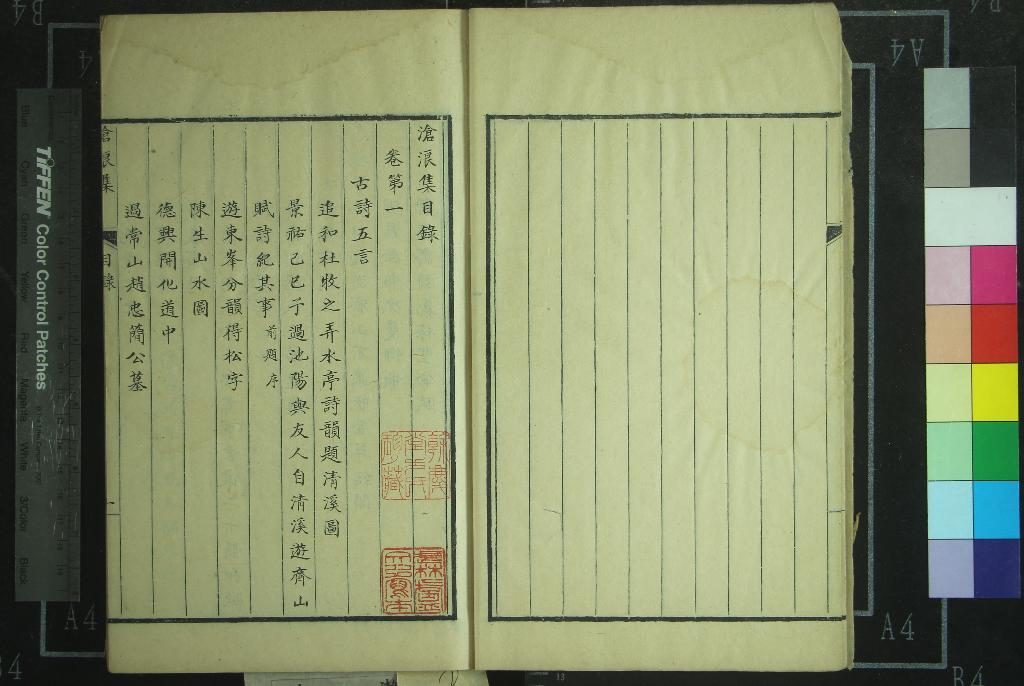 滄浪集目錄
卷第一
古詩五言
追和杜牧之弄水亭詩韻題清溪圖
景祐己巳予過池陽與友人自清溪遊齊山
賦詩紀其事前題序
遊東峯分韻得松字
陳生山水圖
德興開化道中
過常山趙忠簡公墓
滄浪集
目錄
一
TIFFEN Color Control Patches
Blue
Cyan
Green
Yellow
Red
Magenta
White
3/Color
Black
B4
A4
A4
A4
B4